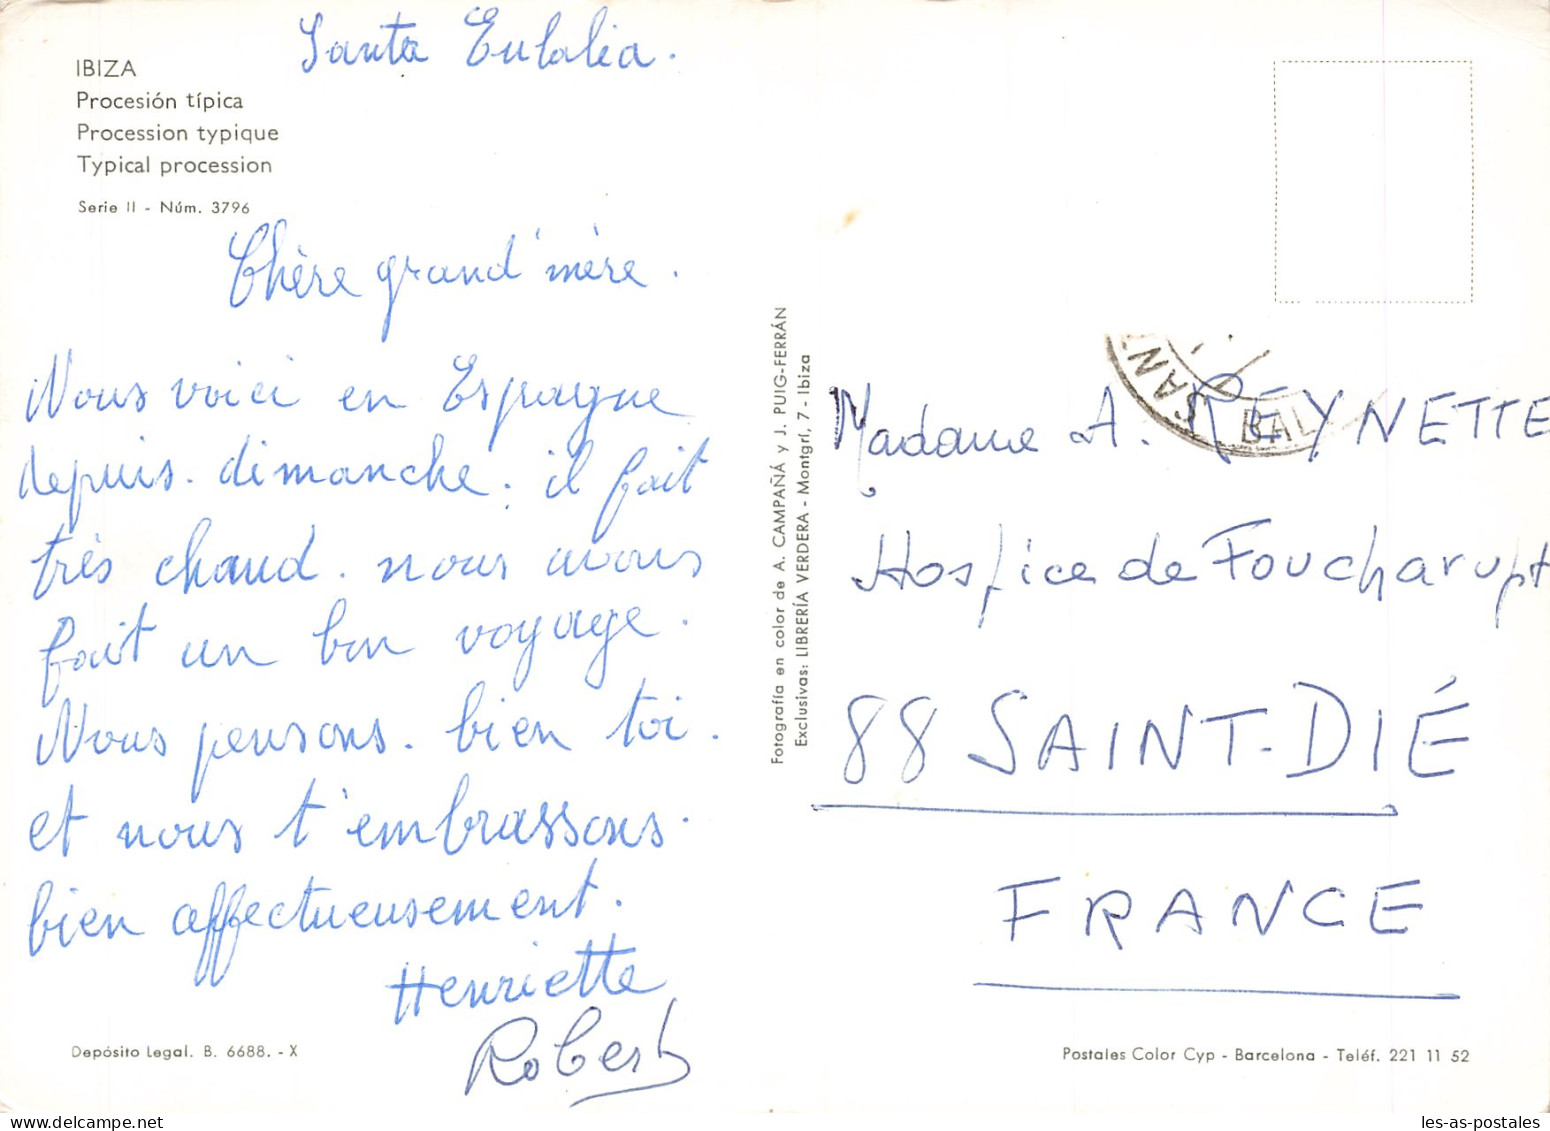 Santa Eulalia.
IBIZA
Procesión típica
Procession typique
Typical procession
Serie II - Núm. 3796
Chère grand'mère.
Nous voici en Espagne
depuis. dimanche. il fait
très chaud. nous avons
fait un bon voyage.
Nous pensons. bien toi.
et nous t'embrassons.
bien affectueusement.
Henriette
Robert
Depósito Legal. B. 6688. - X
Fotografía en color de A. CAMPAÑÁ y J. PUIG-FERRÁN
Exclusivas: LIBRERÍA VERDERA - Montgrí, 7 - Ibiza
SAN
BAL
Madame A. REYNETTE
Hospice de Foucharupt
88 SAINT-DIÉ
FRANCE
Postales Color Cyp - Barcelona - Teléf. 221 11 52
les-as-postales